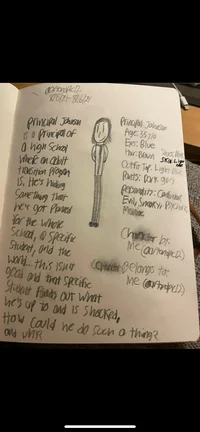 Principal Johnson
is a principal of
a high school
where an adult
transition program
is. He's hiding
something that
he's got planned
for the whole
school, a specific
student, and the
world... this isn't
good and that specific
student finds out what
he's up to and is shocked,
How could he do such a thing?
and why?
Principal Johnson
Age: 35 y/o
Eyes: Blue
Hair: Brown
Outfit: Top: Light Blue
Pants: Dark grey
Personality: Confident
Evil, Sneaky,
Character by:
Me
belongs to:
Me